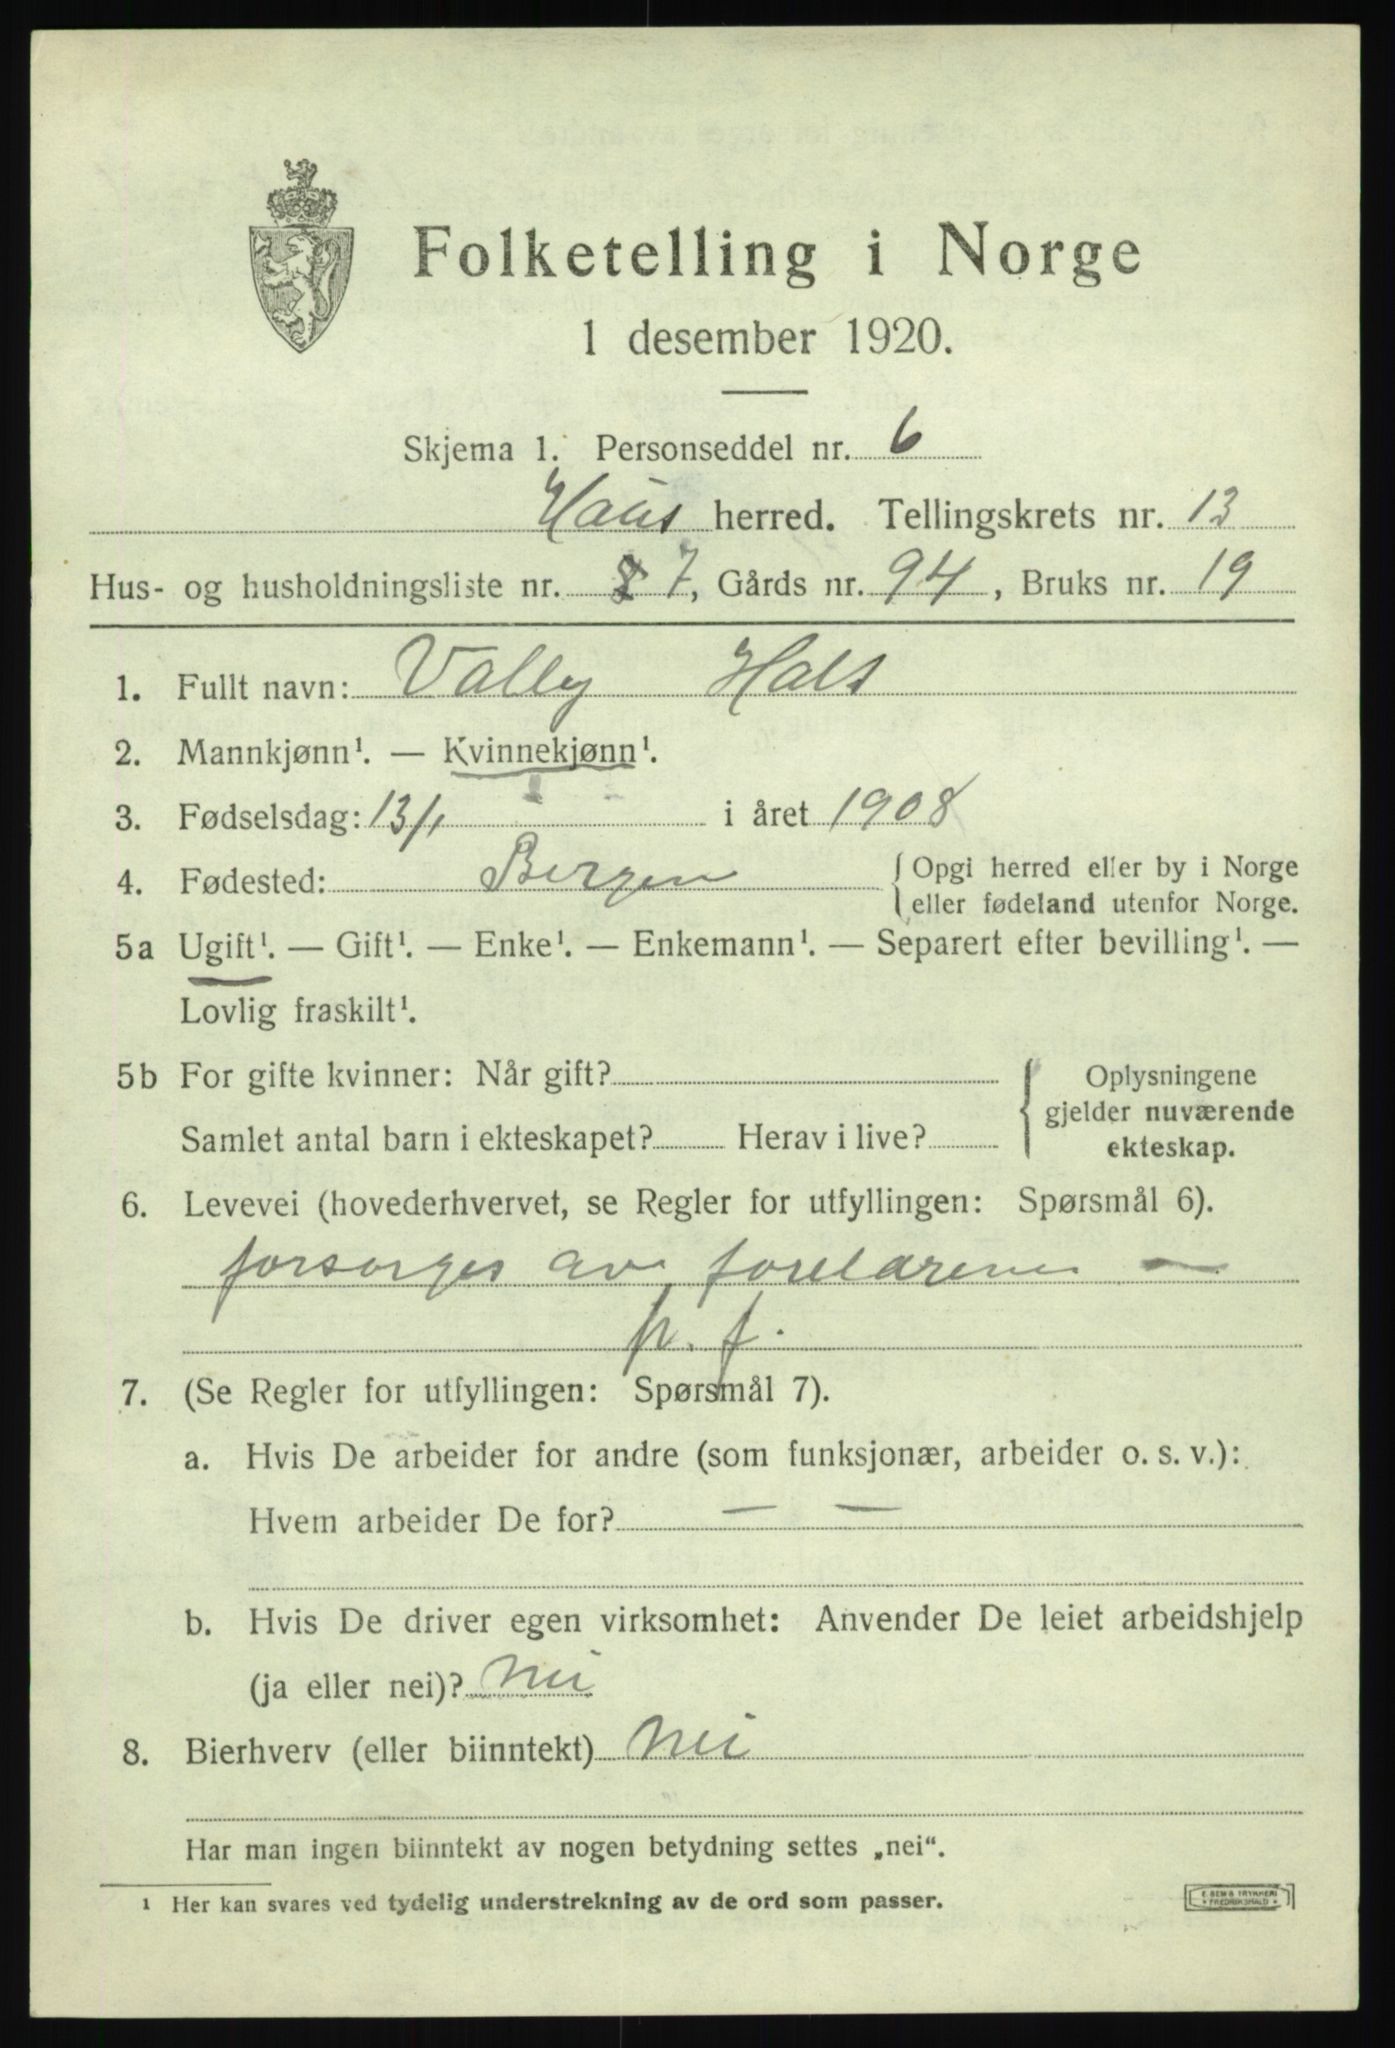 Folketelling i Norge
1 desember 1920.
Skjema 1. Personseddel nr. 6
Haus herred. Tellingskrets nr. 13
Hus- og husholdningsliste nr. 7, Gårds nr. 94, Bruks nr. 19
1. Fullt navn: Vally Hals
2. Mannkjønn¹. — Kvinnekjønn¹.
3. Fødselsdag: 13/1 i året 1908
4. Fødested: Bergen { Opgi herred eller by i Norge
eller fødeland utenfor Norge.
5a Ugift¹. — Gift¹. — Enke¹. — Enkemann¹. — Separert efter bevilling¹. —
Lovlig fraskilt¹.
5b For gifte kvinner: Når gift? { Oplysningene
gjelder nuværende
Samlet antal barn i ekteskapet? Herav i live? ekteskap.
6. Levevei (hovederhvervet, se Regler for utfyllingen: Spørsmål 6).
forsorges av forelærene —
p. f.
7. (Se Regler for utfyllingen: Spørsmål 7).
a. Hvis De arbeider for andre (som funksjonær, arbeider o. s. v.):
Hvem arbeider De for? — —
b. Hvis De driver egen virksomhet: Anvender De leiet arbeidshjelp
(ja eller nei)? Nei
8. Bierhverv (eller biinntekt) Nei
Har man ingen biinntekt av nogen betydning settes „nei“.
¹ Her kan svares ved tydelig understrekning av de ord som passer.
E. SEM'S TRYKKERI
• FREDRIKSHALD •